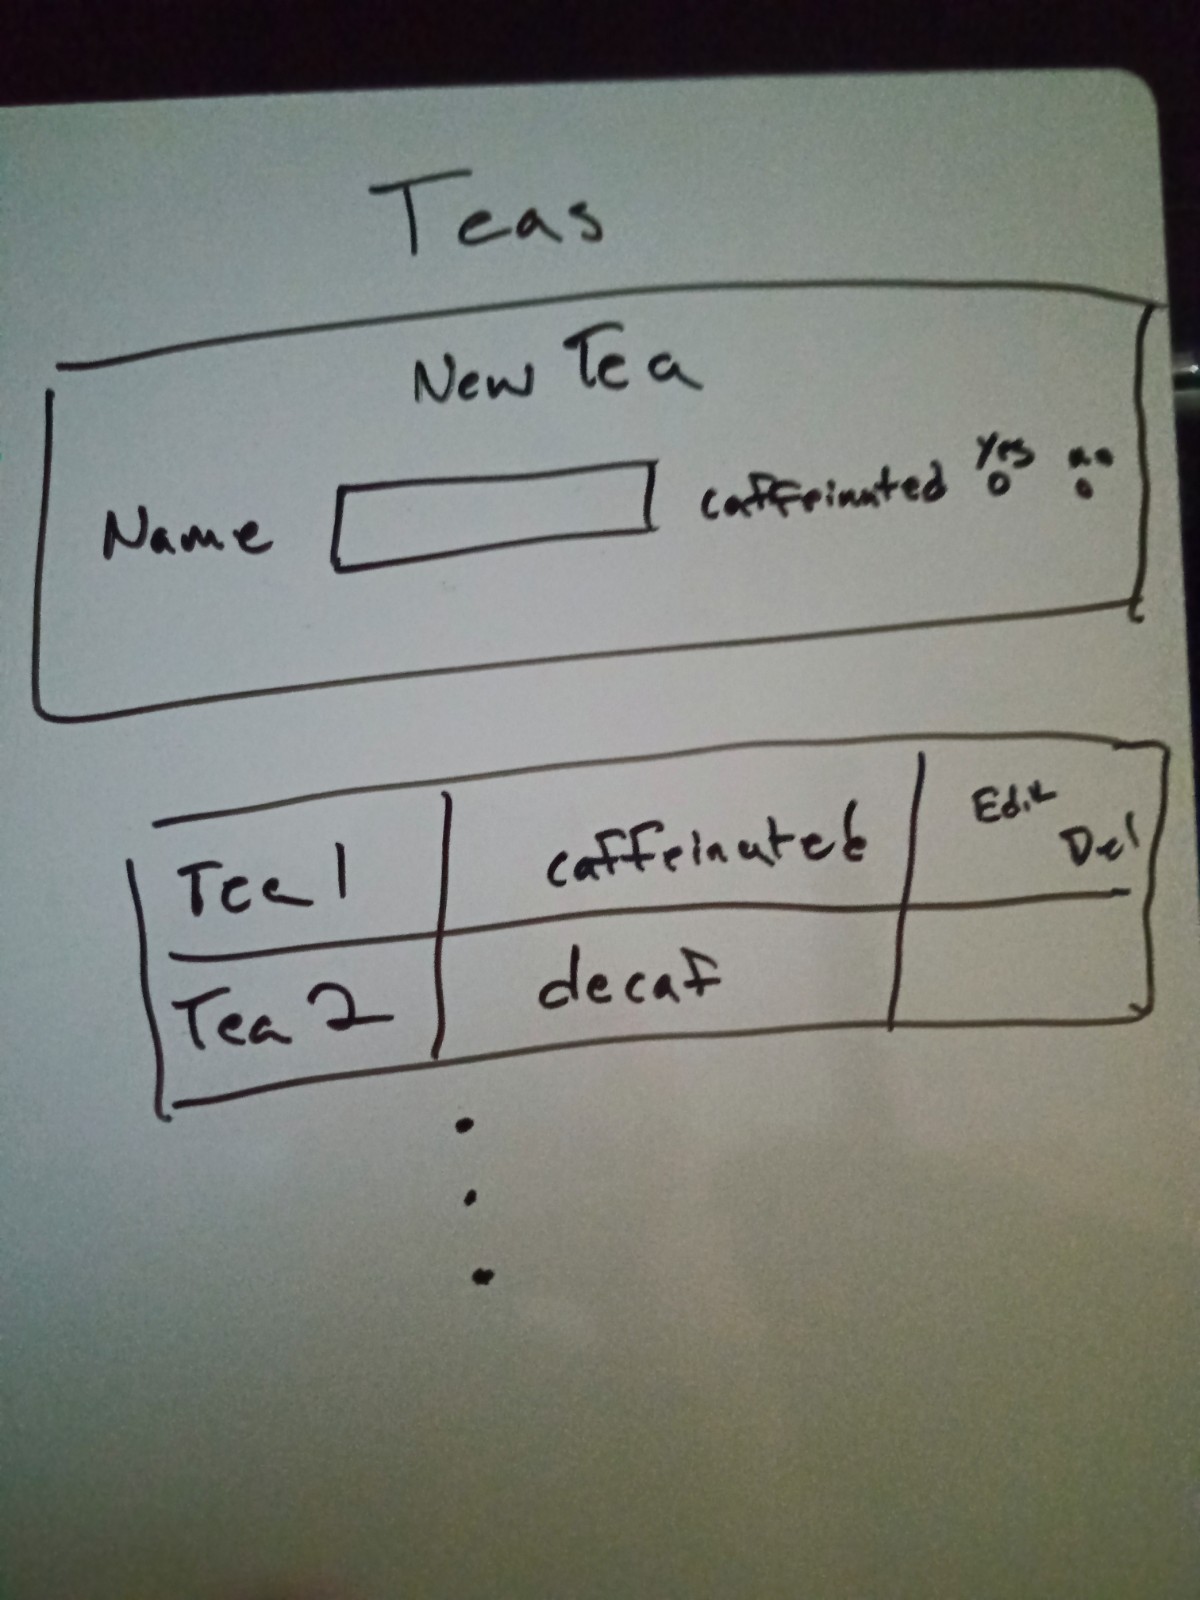 Teas
New Tea
Name caffeinated Yes no
Tea 1 caffeinated Edit Del
Tea 2 decaf